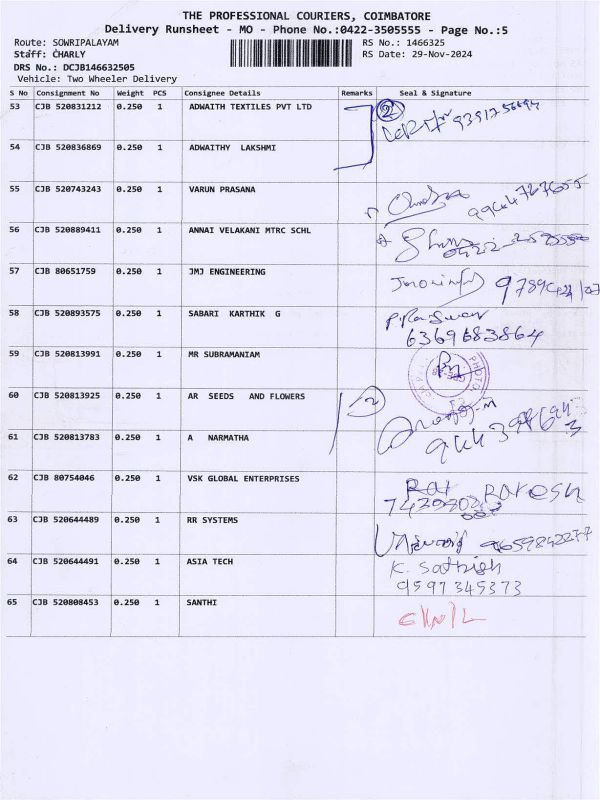 THE PROFESSIONAL COURIERS, COIMBATORE
Delivery Runsheet - MO - Phone No.:0422-3505555 - Page No.:5
Route: SOWRIPALAYAM RS No.: 1466325
Staff: CHARLY RS Date: 29-Nov-2024
DRS No.: DCJB146632505
Vehicle: Two Wheeler Delivery
S No Consignment No Weight PCS Consignee Details Remarks Seal & Signature
53 CJB 520831212 0.250 1 ADWAITH TEXTILES PVT LTD 2
54 CJB 520836869 0.250 1 ADWAITHY LAKSHMI
55 CJB 520743243 0.250 1 VARUN PRASANA
56 CJB 520889411 0.250 1 ANNAI VELAKANI MTRC SCHL
57 CJB 80651759 0.250 1 JMJ ENGINEERING
58 CJB 520893575 0.250 1 SABARI KARTHIK G
6369683864
59 CJB 520813991 0.250 1 MR SUBRAMANIAM
60 CJB 520813925 0.250 1 AR SEEDS AND FLOWERS 2
61 CJB 520813783 0.250 1 A NARMATHA
62 CJB 80754046 0.250 1 VSK GLOBAL ENTERPRISES Rakesh
63 CJB 520644489 0.250 1 RR SYSTEMS
64 CJB 520644491 0.250 1 ASIA TECH K. Sathish
9597345373
65 CJB 520808453 0.250 1 SANTHI